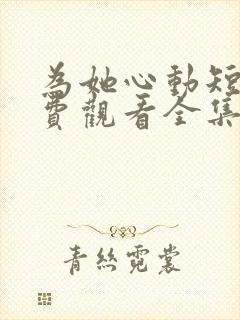 為她心動短
費觀看全集
青絲霓裳